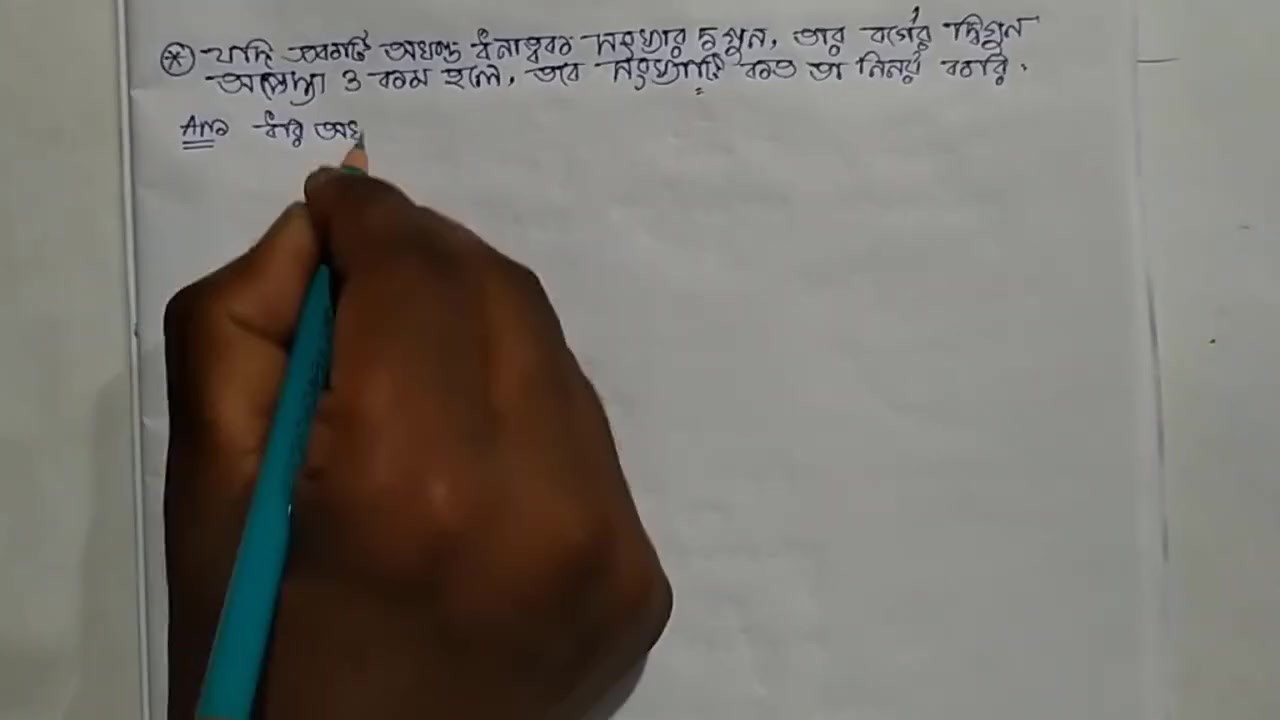 যদি একটি অখণ্ড ধনাত্বক সংখ্যার ৫ গুন, তার বর্গের দ্বিগুন
অপেক্ষা ৩ কম হলে, তবে সংখ্যাটি কত তা নির্নয় করি।
Ans ধরি অখ